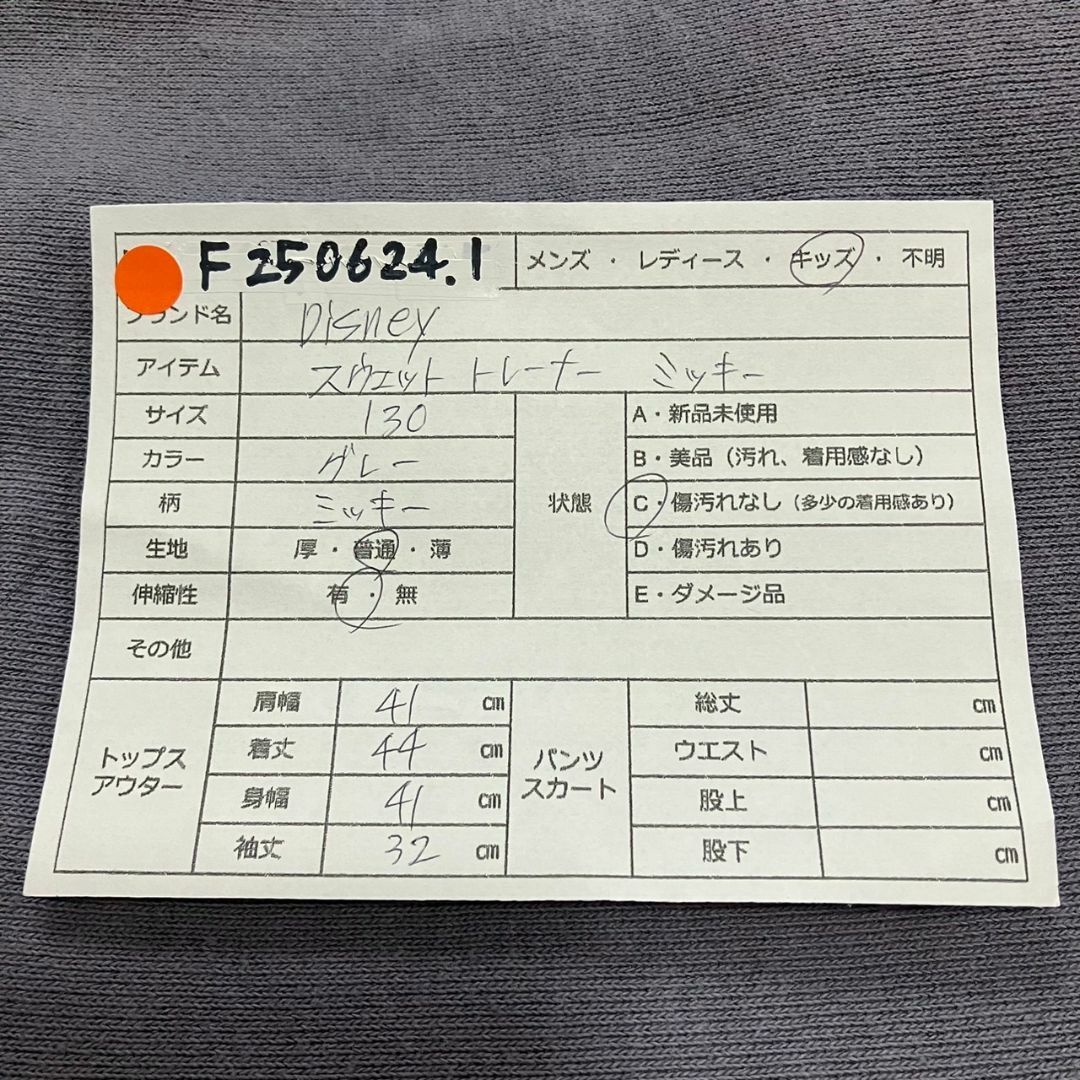 F250624.1 メンズ ・ レディース ・ キッズ ・ 不明
ブランド名 Disney
アイテム スウェット トレーナー ミッキー
サイズ 130
カラー グレー
柄 ミッキー
生地 厚・普通・薄
伸縮性 有・無
状態
A・新品未使用
B・美品（汚れ、着用感なし）
C・傷汚れなし（多少の着用感あり）
D・傷汚れあり
E・ダメージ品
その他
トップス
アウター
肩幅 41 cm
着丈 44 cm
身幅 41 cm
袖丈 32 cm
パンツ
スカート
総丈 cm
ウエスト cm
股上 cm
股下 cm